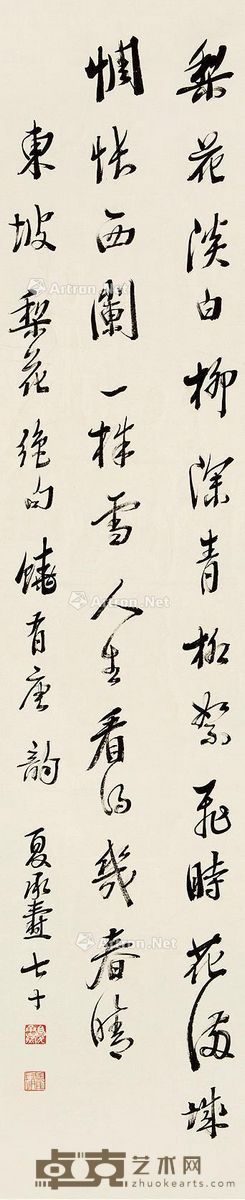 梨花淡白柳深青柳絮飛時花滿城
惆悵西闌一株雪人生看得幾春晴
東坡梨花絕句饒有唐韻 夏承燾七十
Artron.Net
卓克艺术网
www.zhuokearts.com